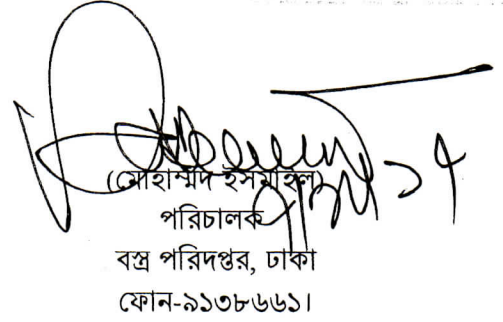 (মোহাম্মদ ইসমাইল)
পরিচালক
বস্ত্র পরিদপ্তর, ঢাকা
ফোন-৯১৩৮৬৬১।